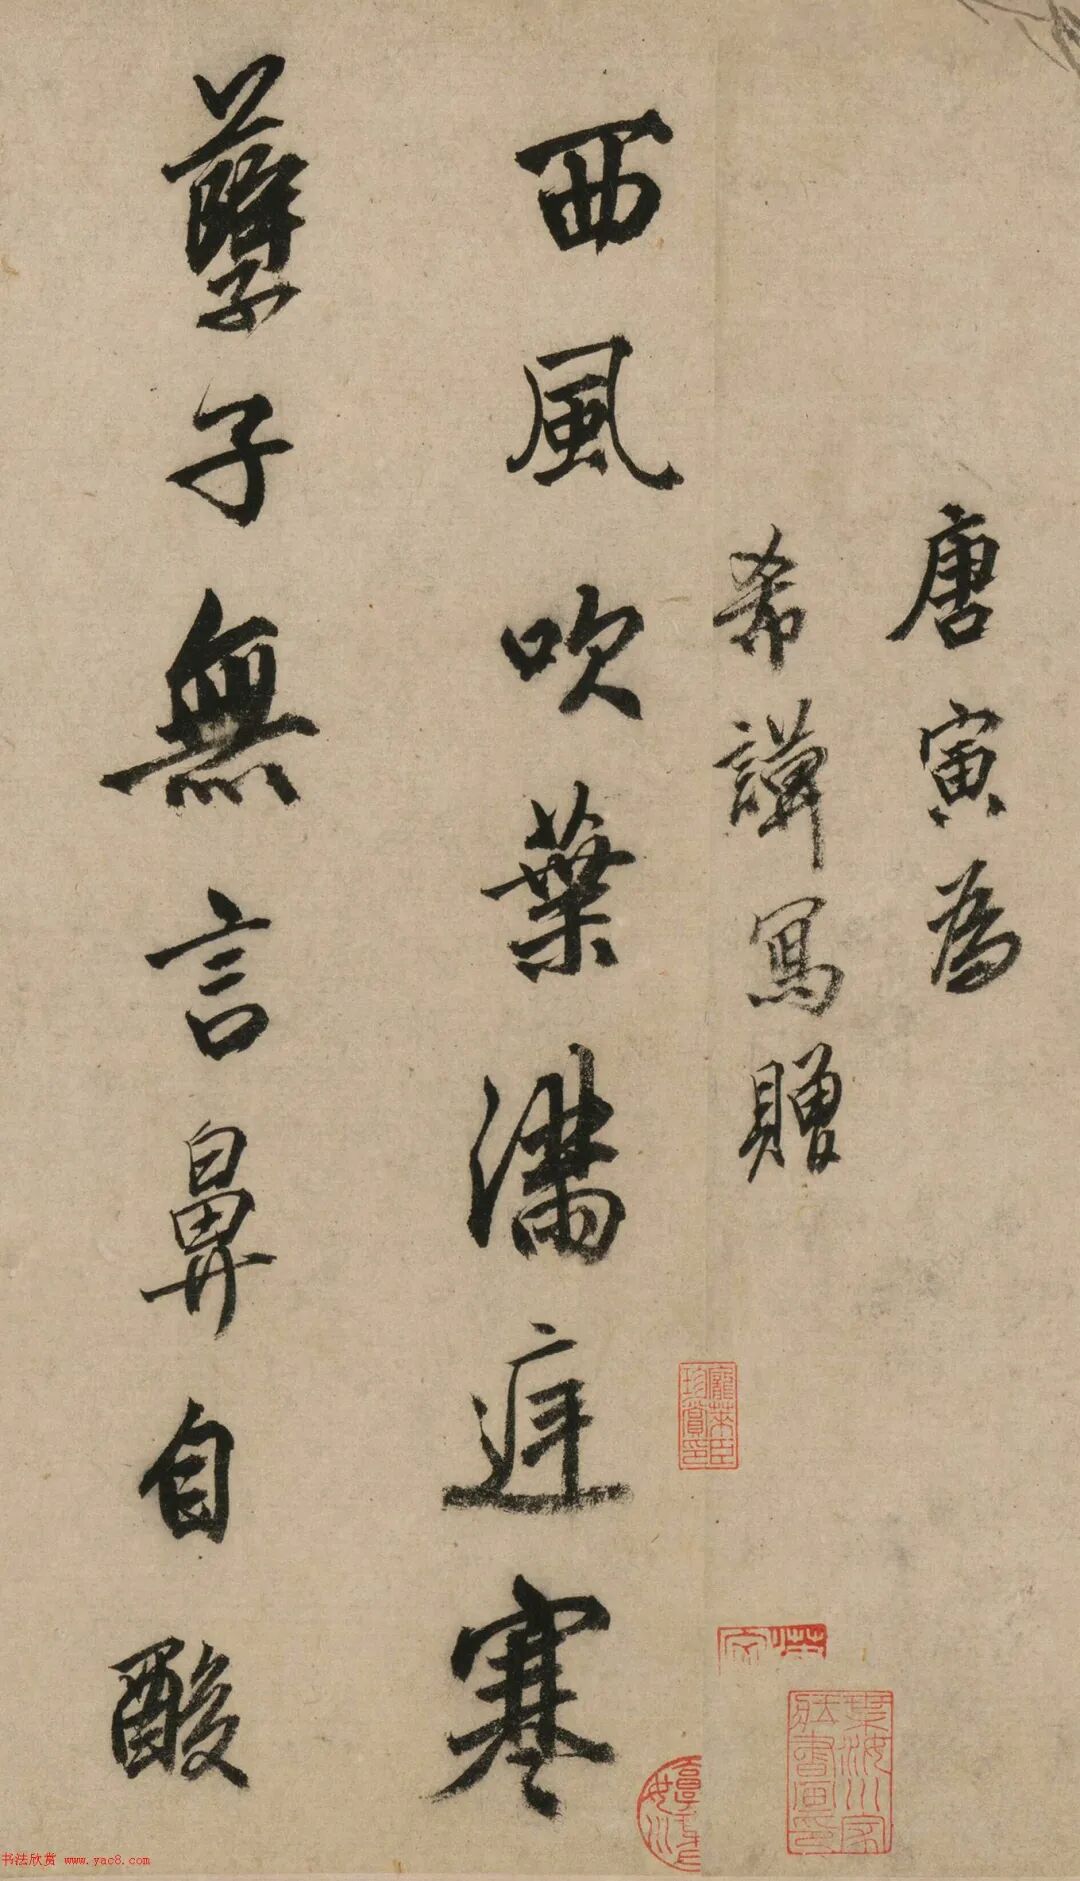 唐寅為
希謨寫贈
西風吹葉滿庭寒
孽子無言鼻自酸
龐萊臣珍賞印
书法欣赏 www.yac8.com